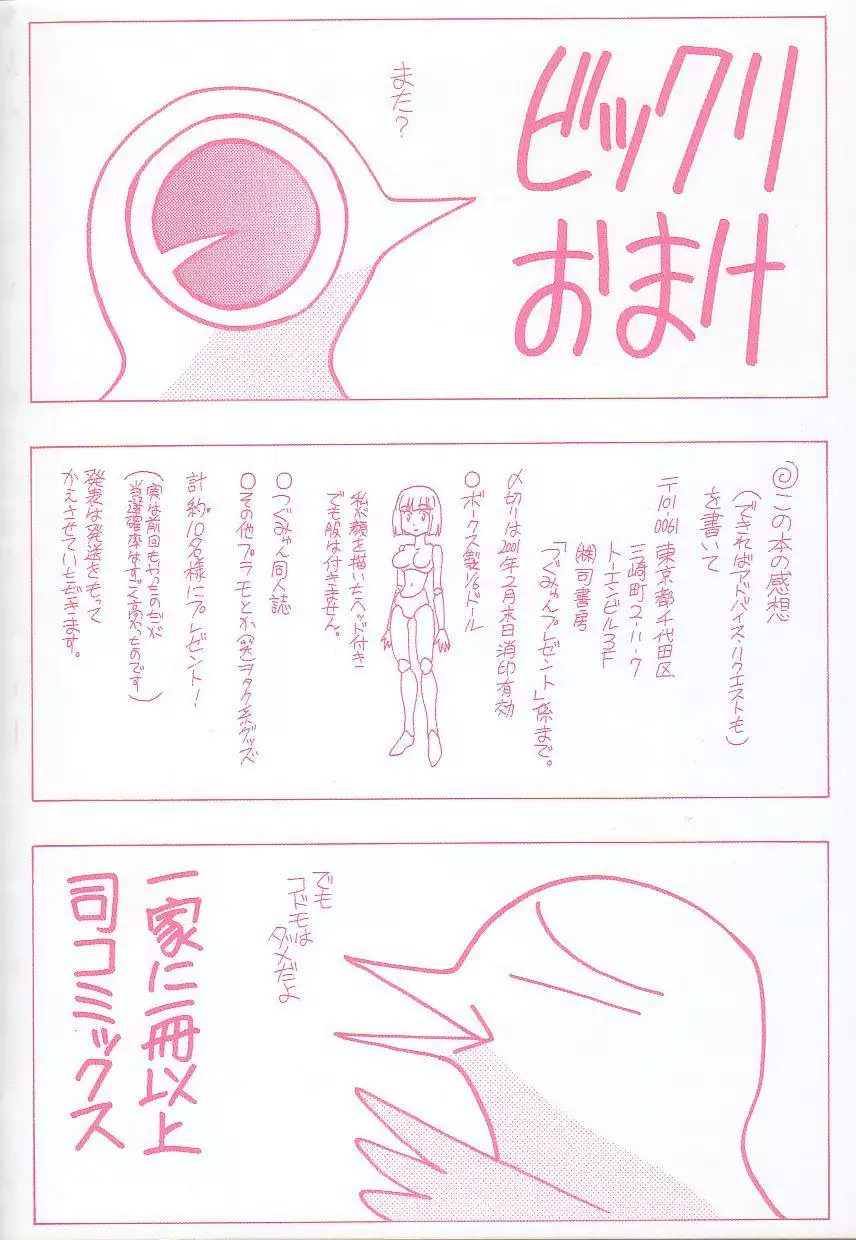 ビックリ
おまけ
また？
◎この本の感想
（できればアドバイス・リクエストも）
を書いて
〒101-0061 東京都千代田区
三崎町2-11-7
トーエンビル3F
㈱司書房
「つぐみゅんプレゼント」係まで。
〆切りは2001年2月末日消印有効
○ボークス製1/6ドール
私が顔を描いたヘッド付き
でも服は付きません。
○つぐみゅん同人誌
○その他プラモとか（笑）ヲタク系グッズ
計約10名様にプレゼント！
（実は前回もやったのだが
当選確率はすごく高かったのです）
発表は発送をもって
かえさせていただきます。
でも
コドモは
ダメだよ
一家に一冊以上
司コミックス